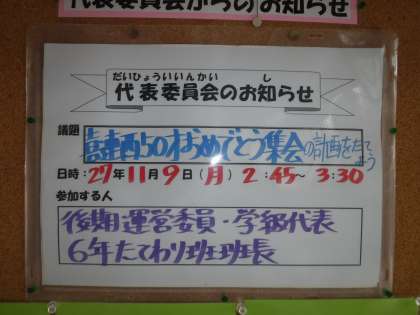 代表委員会からのお知らせ
だいひょういいんかい し
代表委員会のお知らせ
議題
のおめでとう集会の計画をたてよう
日時:27年11月9日(月) 2:45~3:30
参加する人
後期運営委員・学級代表
6年たてわり班班長